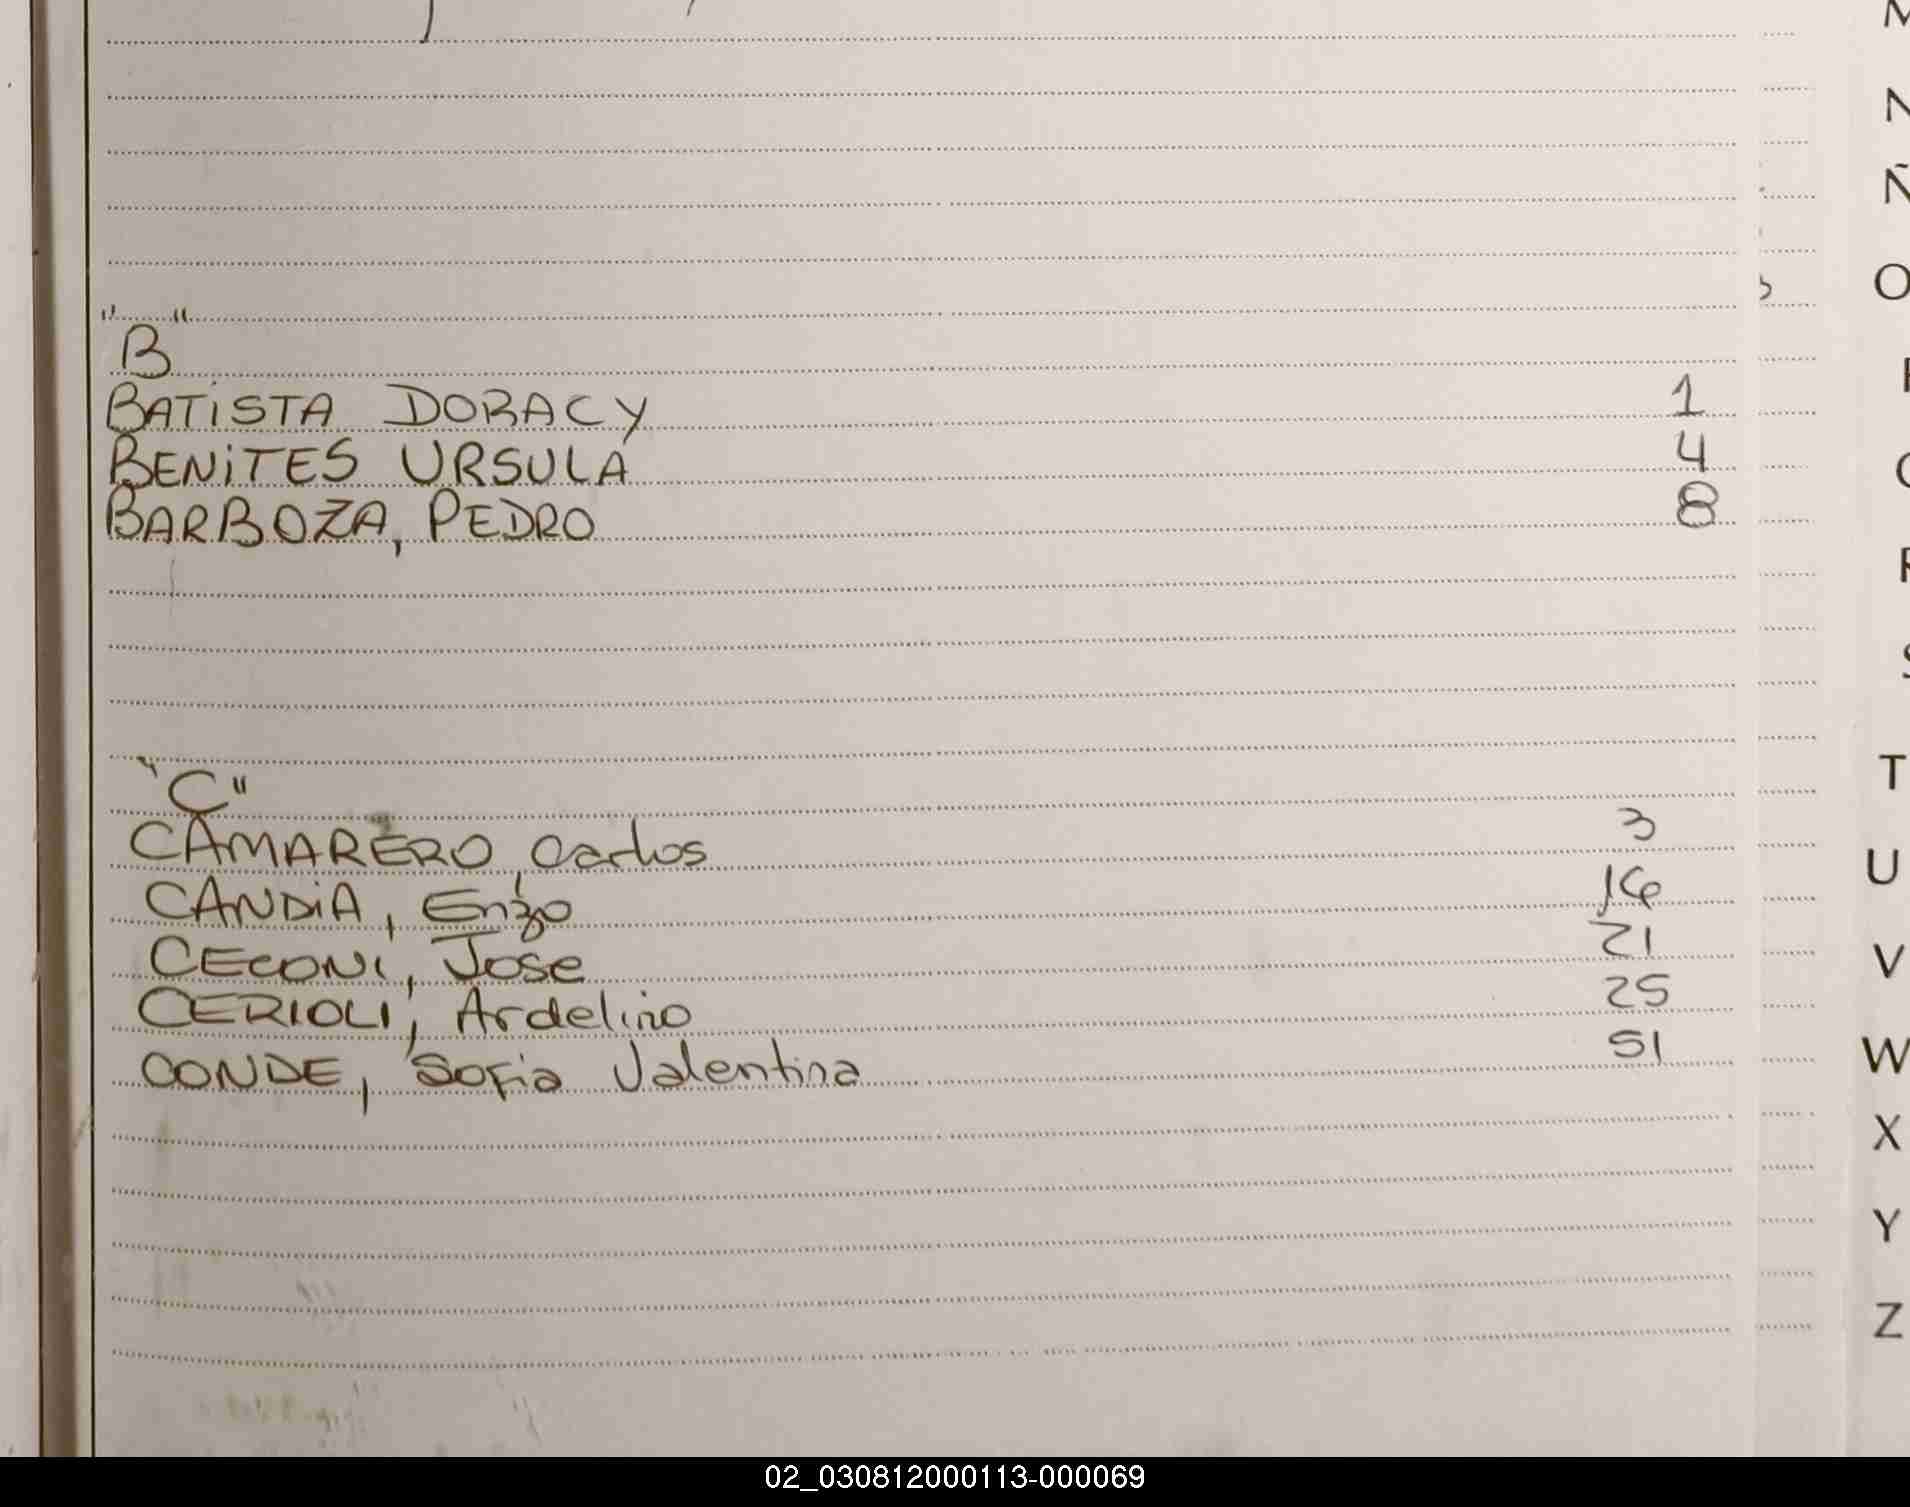 "B"
BATISTA DORACY 1
BENITES URSULA 4
BARBOZA, PEDRO 8
"C"
CAMARERO, Carlos 3
CANDIA, Enzo 16
CECONI, Jose 21
CERIOLI, Ardelino 25
CONDE, Sofia Valentina 51
M
N
Ñ
O
P
Q
R
S
T
U
V
W
X
Y
Z
02_030812000113-000069